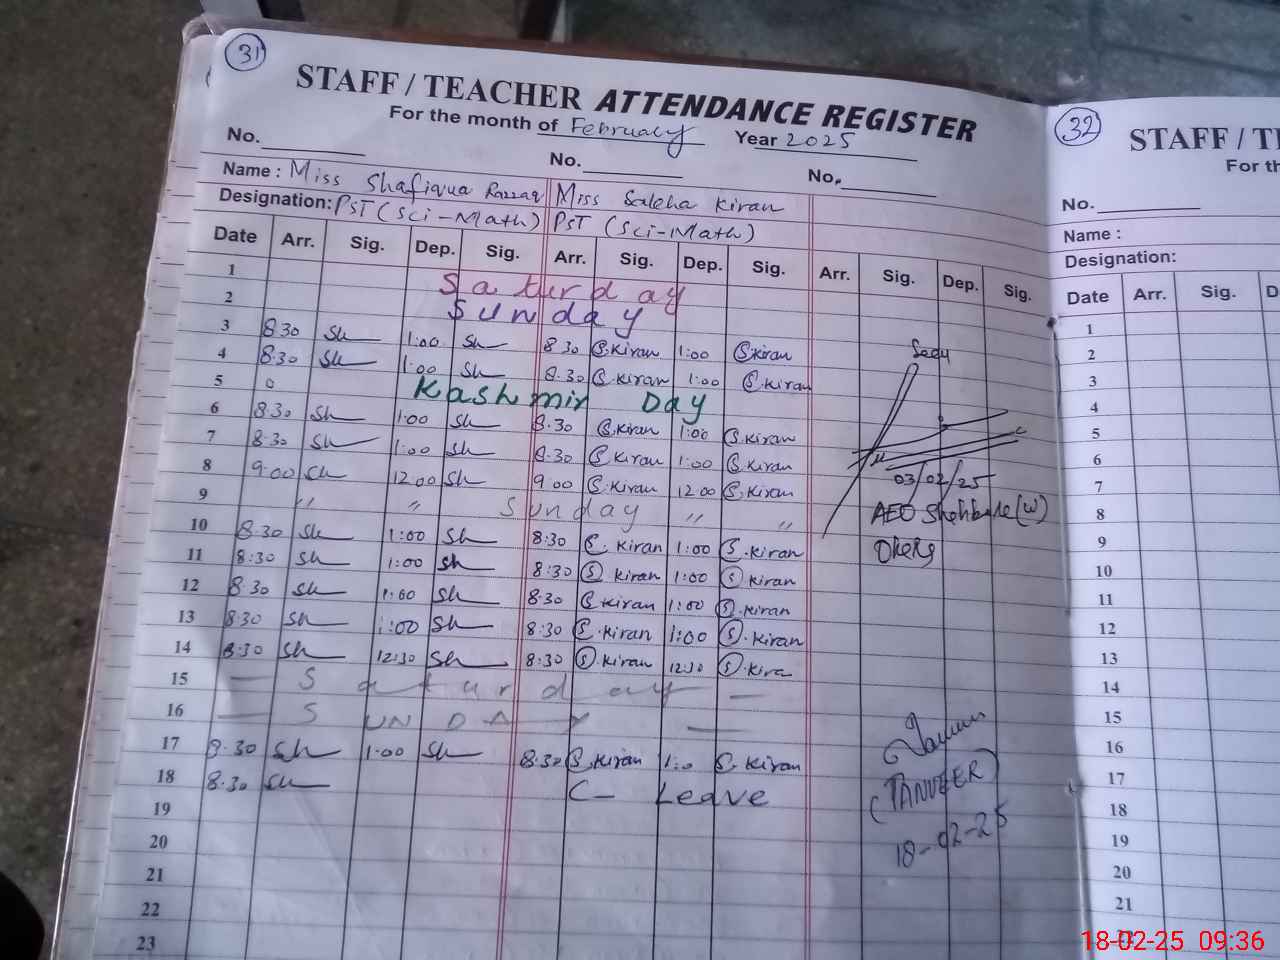 31
STAFF / TEACHER ATTENDANCE REGISTER
For the month of February Year 2025
No. No. No.
Name : Miss Shafiqua Razzaq Miss Saleha Kiran
Designation: PST (Sci-Math) PST (Sci-Math)
Date Arr. Sig. Dep. Sig. Arr. Sig. Dep. Sig. Arr. Sig. Dep. Sig.
1 Saturday
2 Sunday
3 8:30 Sh 1:00 Sh 8:30 S.Kiran 1:00 S.Kiran
4 8:30 Sh 1:00 Sh 8:30 S.Kiran 1:00 S.Kiran
5 Kashmir Day
6 8:30 Sh 1:00 Sh 8:30 S.Kiran 1:00 S.Kiran
7 8:30 Sh 1:00 Sh 8:30 S.Kiran 1:00 S.Kiran
8 9:00 Sh 12:00 Sh 9:00 S.Kiran 12:00 S.Kiran
9 " " Sunday " "
10 8:30 Sh 1:00 Sh 8:30 S.Kiran 1:00 S.Kiran
11 8:30 Sh 1:00 Sh 8:30 S.Kiran 1:00 S.Kiran
12 8:30 Sh 1:00 Sh 8:30 S.Kiran 1:00 S.Kiran
13 8:30 Sh 1:00 Sh 8:30 S.Kiran 1:00 S.Kiran
14 8:30 Sh 12:30 Sh 8:30 S.Kiran 12:30 S.Kira
15 — Saturday —
16 — SUNDAY —
17 8:30 Sh 1:00 Sh 8:30 S.Kiran 1:0 S.Kiran
18 8:30 Sh C- Leave
19
20
21
22
23
03/02/25
AEO
(TANVEER)
18-02-25
32
STAFF / T
For th
No.
Name :
Designation:
Date Arr. Sig. D
1
2
3
4
5
6
7
8
9
10
11
12
13
14
15
16
17
18
19
20
21
18-02-25 09:36